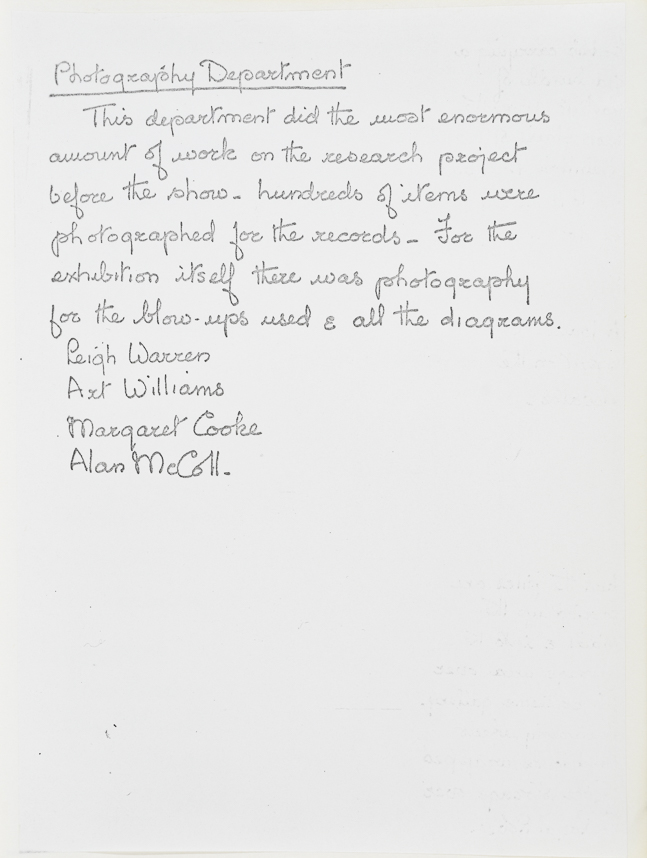 Photography Department
This department did the most enormous
amount of work on the research project
before the show - hundreds of items were
photographed for the records - For the
exhibition itself there was photography
for the blow-ups used & all the diagrams.
Leigh Warren
Art Williams
Margaret Cooke
Alan McColl.